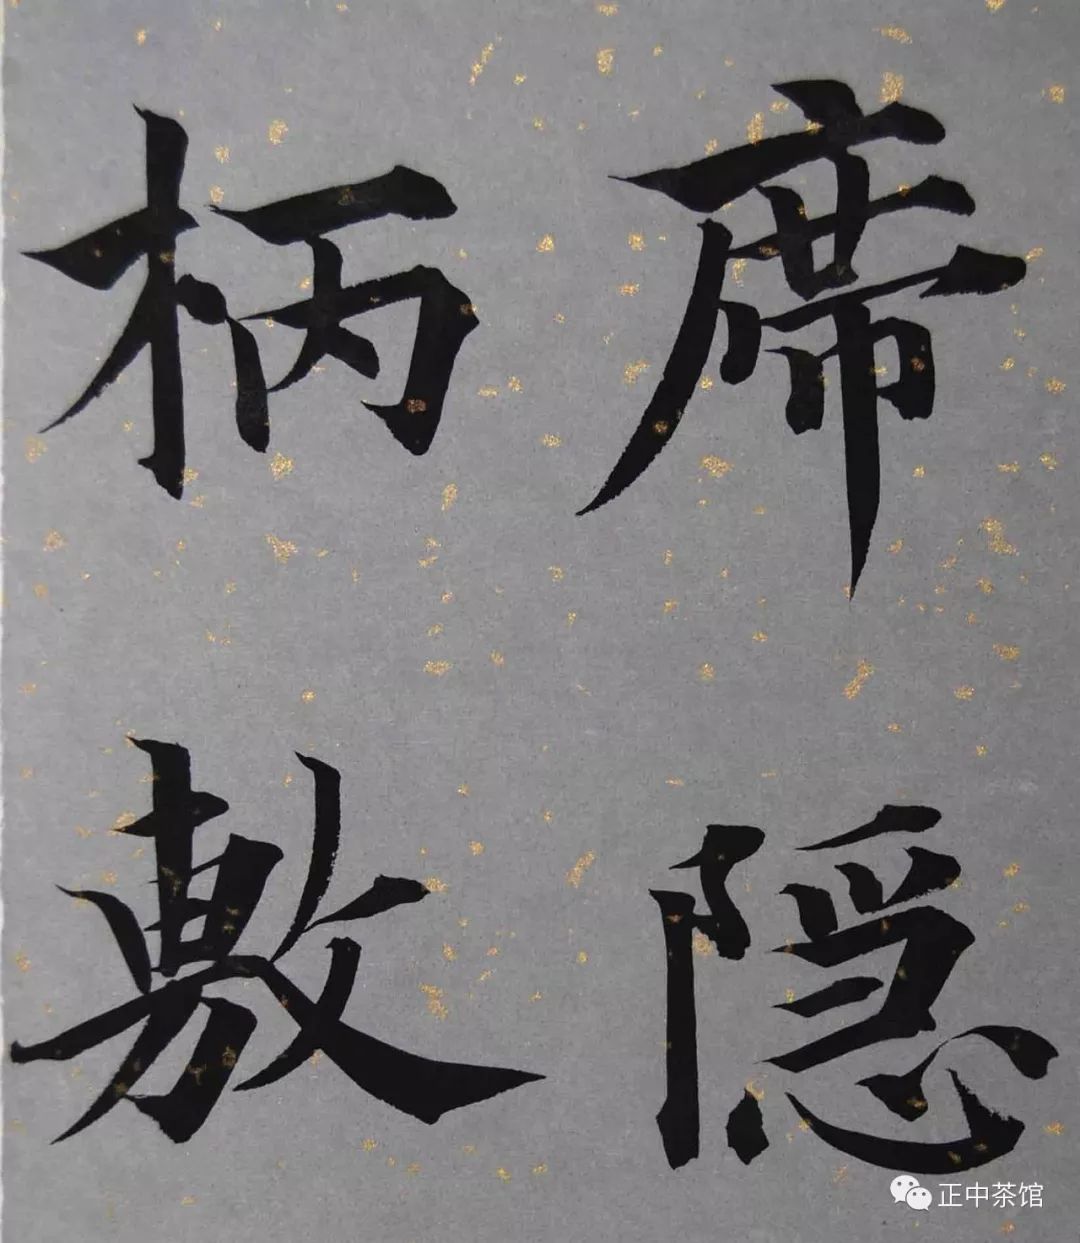 席隐
柄敷
正中茶馆